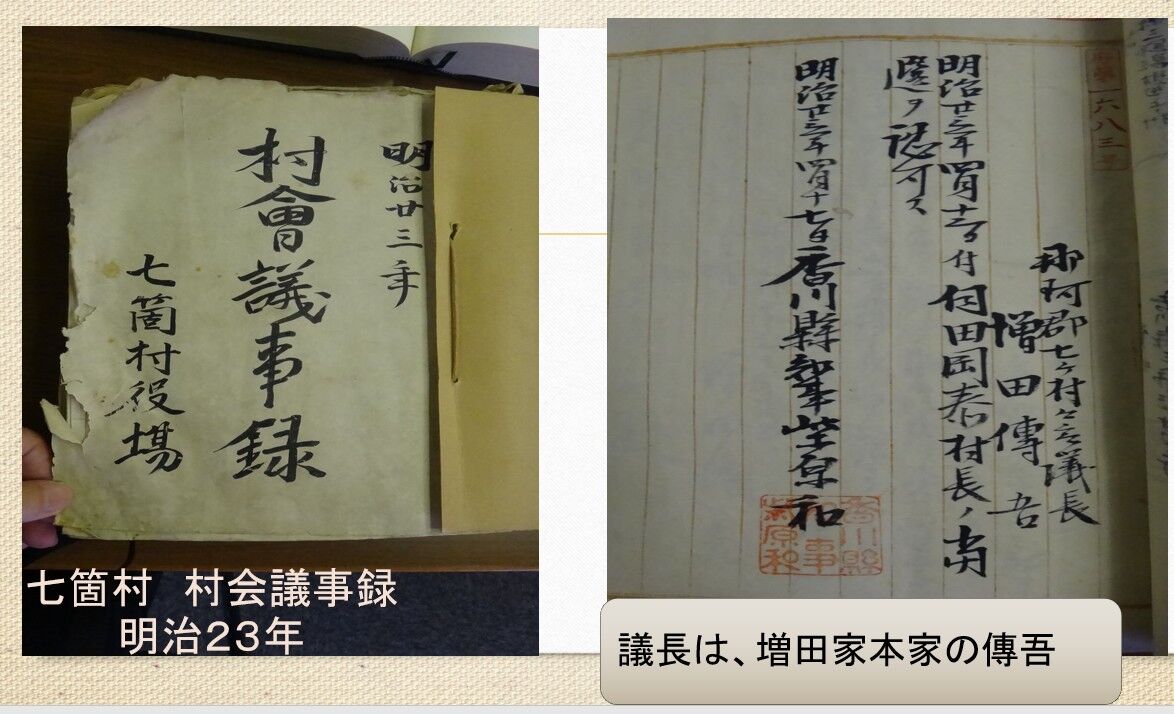 明治廿三年
村會議事録
七箇村役場
七箇村　村会議事録
明治２３年
一六八三号
那珂郡七ヶ村々会議長
増田傳吾
明治廿三年四月十二日付伺田岡泰村長ノ当
選ヲ認可ス
明治廿三年四月十七日香川縣知事柴原和
香川縣
知事
柴原和
議長は、増田家本家の傳吾